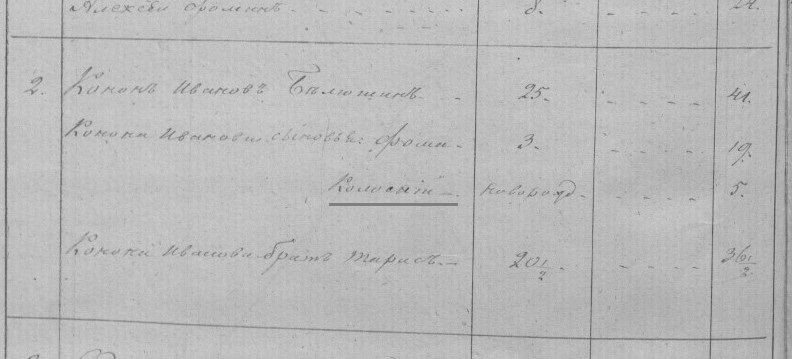 Алексей Фоминъ - - - - - 8. - - - - 24.
2. Кононъ Ивановъ Бѣлюшинъ - 25. - - - - 41.
Конона Иванова сыновья: Фома - 3. - - - - 19.
Колоский - новорожд. - - - - 5.
Конона Иванова братъ Тарасъ - 20 1/2 - - - - - 36 1/2